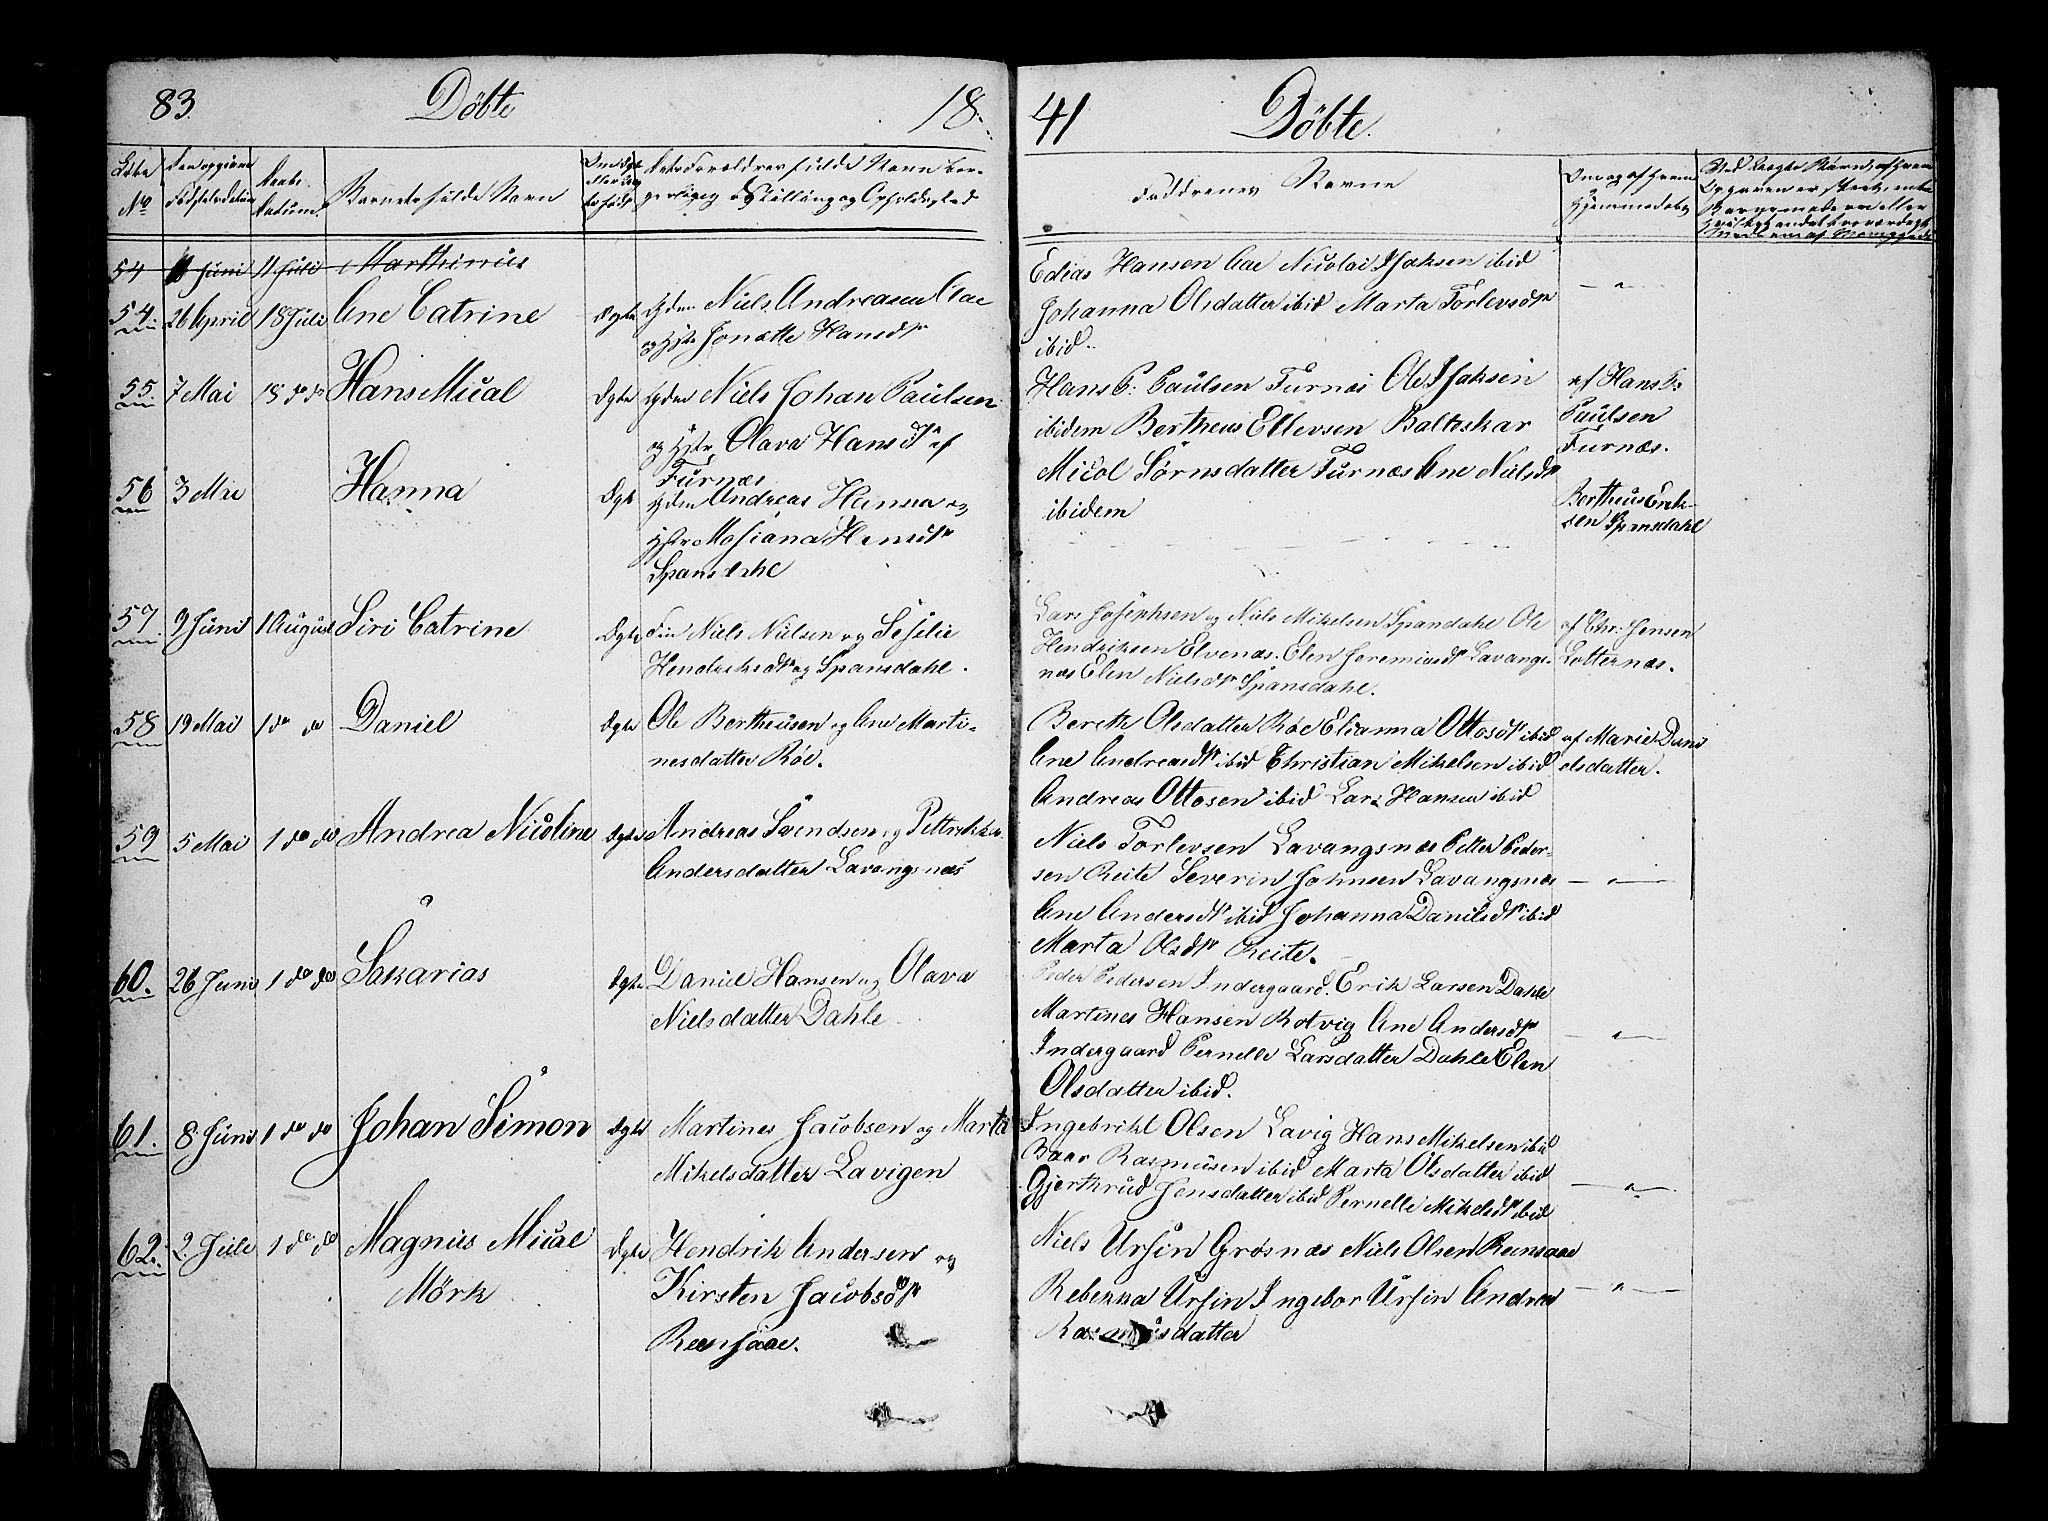 83. Döbte 18
41 Döbte.
Löbe No
Den opgivne Födselsdatum
Daabs Datum
Barnets fulde Navn
Om Dgte eller Uægte föd
Det Forældres fulde Navn bor-
gerlige Stilling og Opholdssted
Faddrenes Navne
Om og af hvem Hjemmedöbt
Ved uægte Börn, af hvem
54 Juni 11 Juli Marthinus
54. 26 April 18 Juli Ane Catrine Dgte Gdm Niels Andreasen Aae
og Hstr Jonette Hansdtr
Edias Hansen Aae Nicolai Isaksen ibid
Johanna Olsdatter ibid Marta Torlevsdtr
ibid.
55. 7 Mai 18 do do Hans Mical Dgte Gdm Niels Johan Paulsen
og Hstr Olava Hansdtr af
Furnæs
Hans P. Paulsen Furnæs Ole Isaksen
ibidem Bertheus Ellevsen Baltskar
Micol Sörnsdatter Furnæs Ane Nielsdtr
ibidem
af Hans P.
Paulsen
Furnæs.
56 3 Mai Hanna Dgte Gdm Andreas Hansen og
Hstr Mosiana Hansdtr
Spansdahl
Bertheus Erik-
sen Spansdahl
57. 9 Juni 1 August Siri Catrine Dgte Fin Niels Nilsen og Sesilie
Hendriksdtr og Spansdahl.
Lars Josephsen og Niels Mikelsen Spandahl Ole
Hendriksen Elvenæs. Elen Jeremiasdtr Lavangs-
næs Elen Nielsdtr Spansdahl.
af Chr: Jensen
Lotternæs.
58 19 Mai 1 do do Daniel Dgte Ole Bertheusen og Ane Marti-
nesdatter Röe.
Bereth Olsdatter Röe Elianna Ottosdtr ibid
Ane Andreasdtr ibid Christian Mikelsen ibid
Andreas Ottosen ibid Lars Hansen ibid
af Marie Dani
elsdatter.
59 5 Mai 1 do do Andrea Nicoline Dgte Andreas Svendsen og Pettrekka
Andersdatter Lavangsnæs
Niels Torlevsen Lavangsnæs Petter Peder-
sen Reite Severin Johnsen Lavangsnæs
Ane Andersdtr ibid Johanna Danilsdtr ibid
Marta Olsdtr Reite.
60. 26 Juni 1 do do Sakarias Dgte Daniel Hansen og Olava
Nielsdatter Dahle
Peder Pedersen Indergaard. Erik Larsen Dahle
Martines Hansen Rotvig Ane Andersdtr
Indergaard Pernelle Larsdatter Dahle Elen
Olsdatter ibid.
61. 8 Juni 1 do do Johan Simon Dgte Martines Jacobsen og Marta
Mikelsdatter Lavigen
Ingebrikt Olsen Lavig Hans Mikelsen ibid
Baar Rasmusen ibid Marta Olsdatter ibid
Gjerthrud Jensdatter ibid Pernelle Mikelsdtr ibid
62. 2 Juli 1 do do Magnus Mical
Mörk
Dgte Hendrik Andersen og
Kirsten Jacobsdtr
Reensaae.
Niels Ursin Grösnæs Niels Olsen Reensaae
Rebekka Ursin Ingebor Ursin Andrea
Rasmusdatter